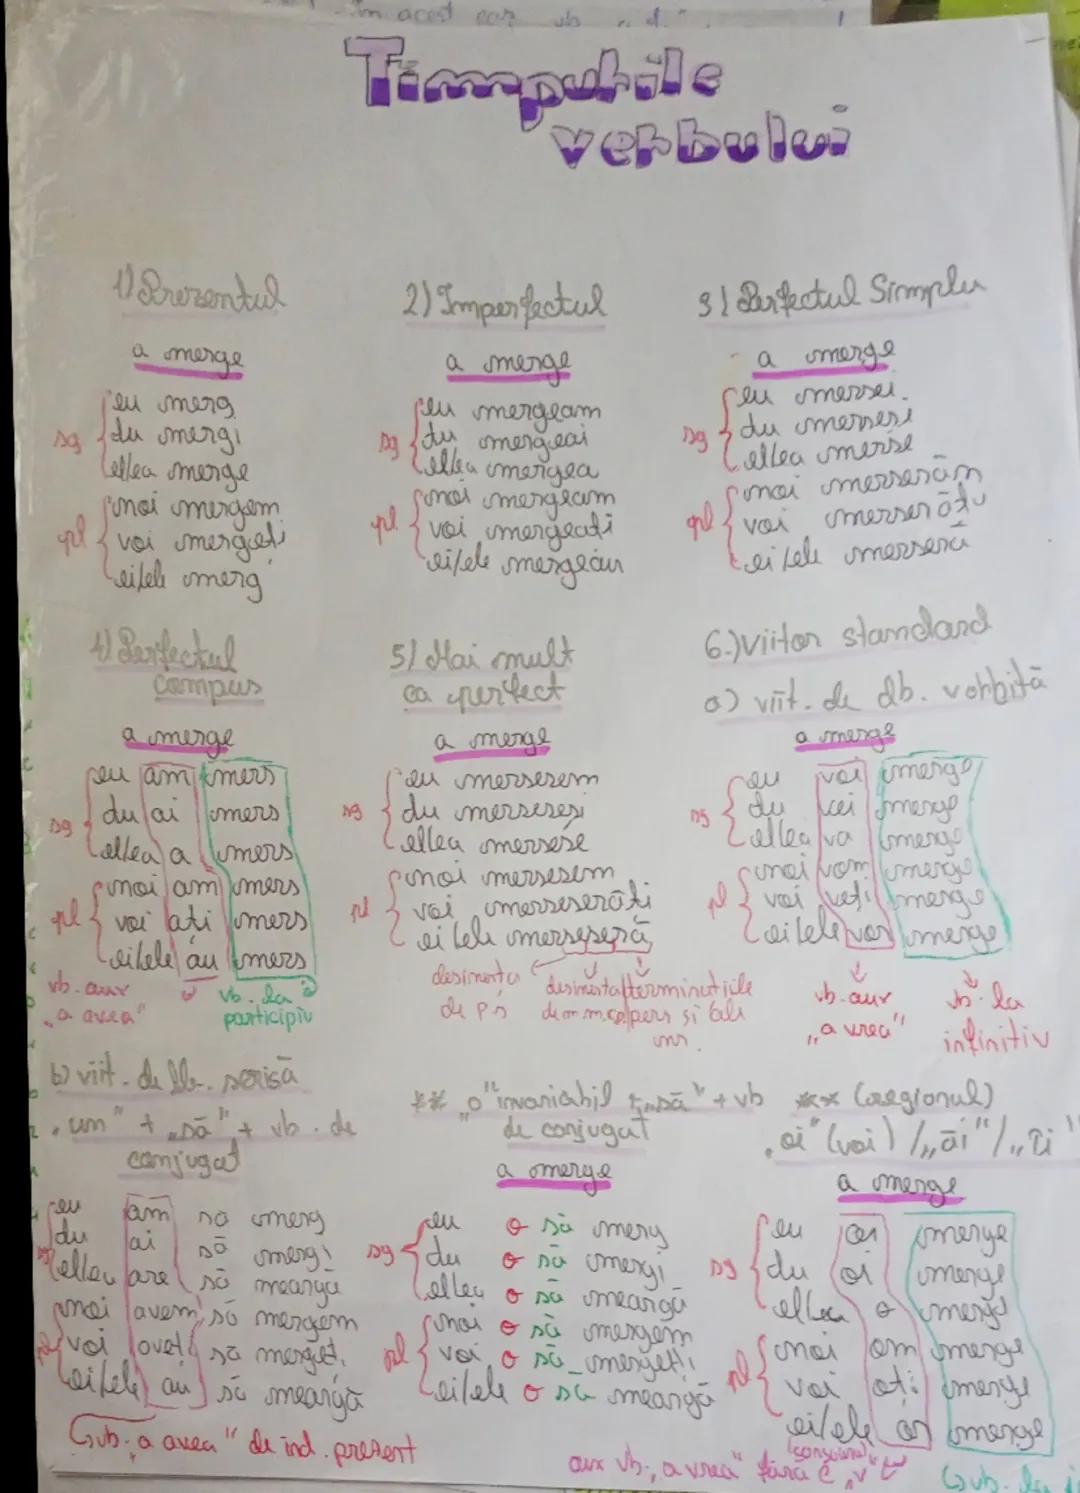 în acest caz vb
Timpurile
verbului
1) Prezentul
a merge
sg
eu merg
tu mergi
el/ea merge
pl
noi mergem
voi mergeți
ei/ele merg
2) Imperfectul
a merge
sg
eu mergeam
tu mergeai
el/ea mergea
pl
noi mergeam
voi mergeați
ei/ele mergeau
3) Perfectul Simplu
a merge
sg
eu mersei
tu merseși
el/ea merse
pl
noi merserăm
voi merserăți
ei/ele merseră
4) Perfectul
compus
a merge
sg
eu am mers
tu ai mers
el/ea a mers
pl
noi am mers
voi ați mers
ei/ele au mers
vb. aux
"a avea"
vb. la
participiu
5) Mai mult
ca perfect
a merge
sg
eu mersesem
tu merseseși
el/ea mersese
pl
noi mersesem
voi merseserăți
ei/ele merseseră
desinența
de ps
desinența
de m.m.cp
terminațiile
pers și ale
nr.
6.) Viitor standard
a) viit. de lb. vorbită
a merge
sg
eu voi merge
tu vei merge
el/ea va merge
pl
noi vom merge
voi veți merge
ei/ele vor merge
vb. aux
„a vrea"
vb. la
infinitiv
b) viit. de lb. scrisă
+ „să" + vb. de
conjugat
sg
eu am să merg
tu ai să mergi
el/ea are să meargă
pl
noi avem să mergem
voi aveți să mergeți
ei/ele au să meargă
vb. „a avea" de ind. prezent
** „o" invariabil + „să" + vb
de conjugat
a merge
sg
eu o să merg
tu o să mergi
el/ea o să meargă
pl
noi o să mergem
voi o să mergeți
ei/ele o să meargă
*** (regional)
„oi" (voi) / „ăi" / „îi"
a merge
sg
eu oi merge
tu oi merge
el/ea o merge
pl
noi om merge
voi oți merge
ei/ele or merge
aux vb. „a vrea" fără „v"
vb. la